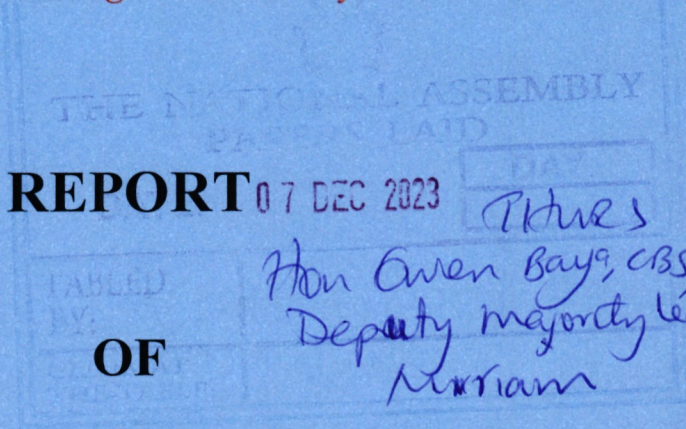 THE NATIONAL ASSEMBLY
PAPERS LAID
DAY
REPORT 07 DEC 2023 Thurs
TABLED
BY:
Hon Owen Baya, CBS
Deputy Majority
OF
Miriam